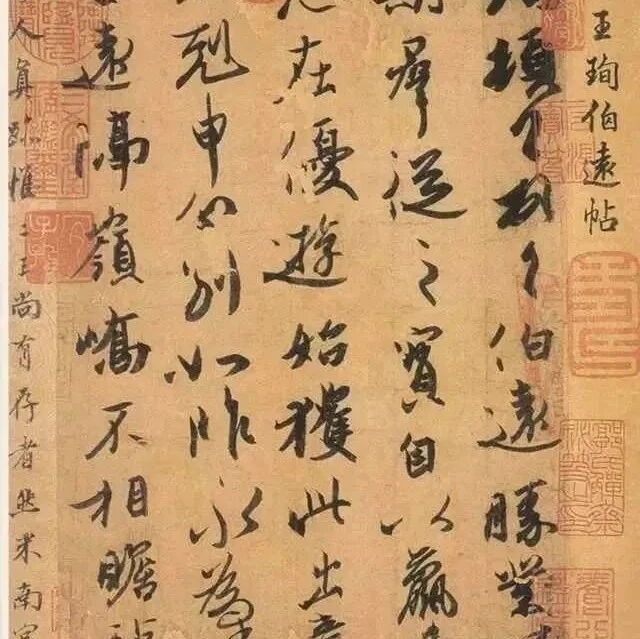 王珣伯遠帖
頓首頓首伯遠勝業
期群從之寶自以羸
志在優遊始獲此出意
剋申分別如昨永為
遠隔嶺嶠不相瞻臨
人真跡惟二王尚有存者然米南宮